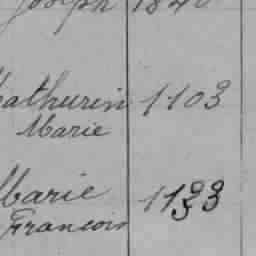 Joseph 1840
Mathurin 1103
Marie
Marie 1133
Francois